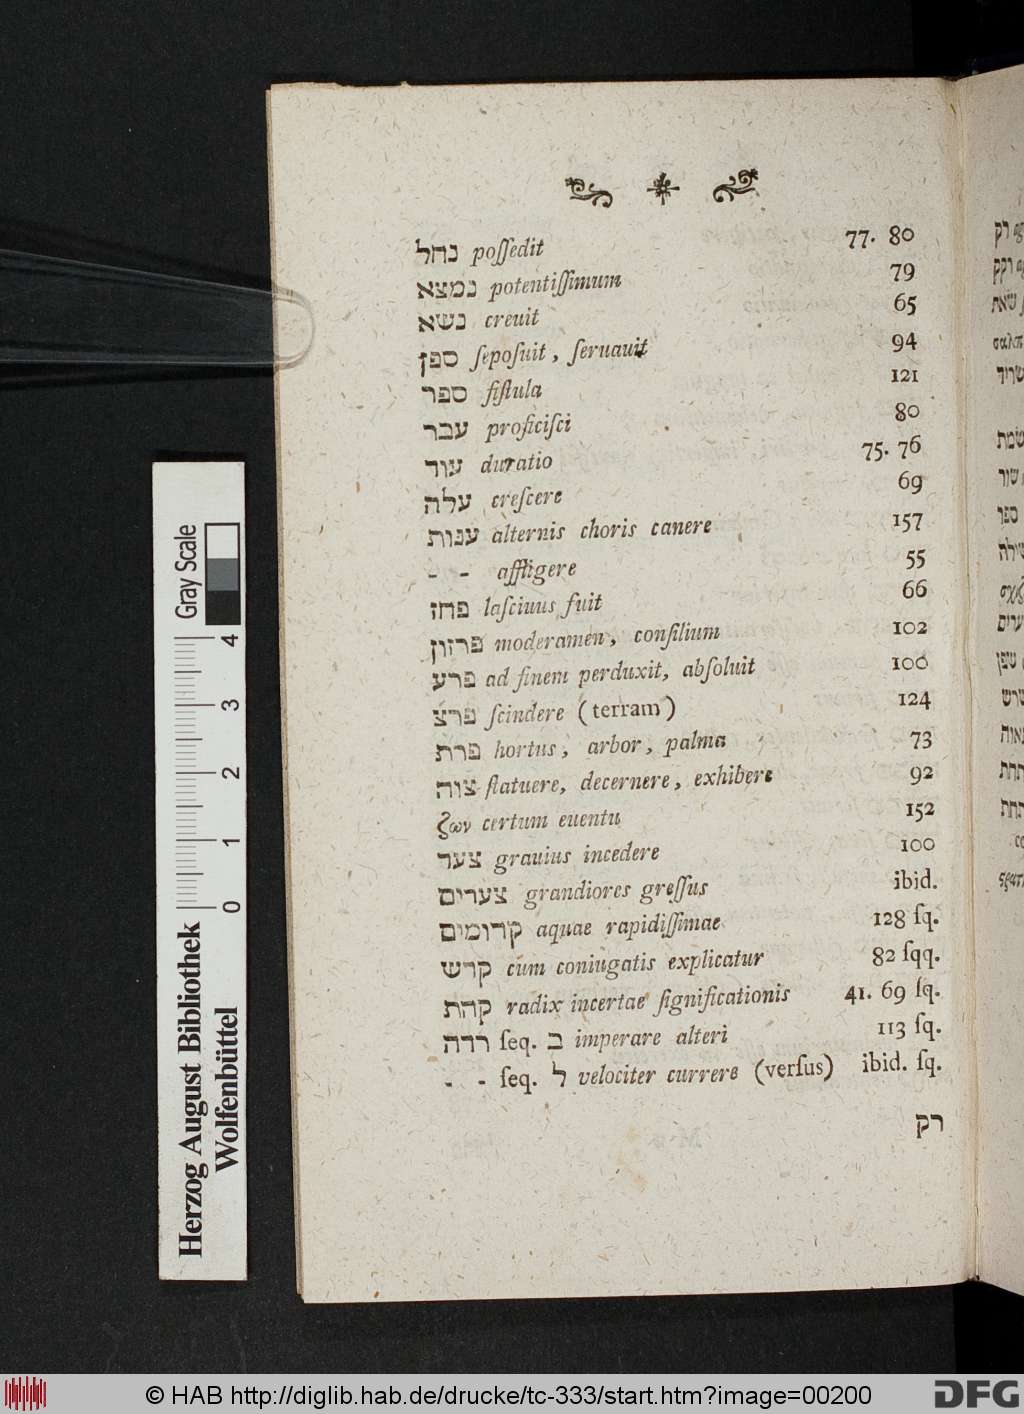 נחל poſſedit 77. 80
נמצא potentiſſimum 79
נשא creuit 65
ספן ſepoſuit, ſeruauit 94
ספר fiſtula 121
עבר proficiſci 80
עור duratio 75. 76
עלה creſcere 69
ענות alternis choris canere 157
- - affligere 55
פחז laſciuus fuit 66
פרזון moderamen, conſilium 102
פרע ad finem perduxit, abſoluit 106
פרצ ſcindere (terram) 124
פרת hortus, arbor, palma 73
צוה ſtatuere, decernere, exhibere 92
ζων certum euentu 152
צער grauius incedere 100
צערים grandiores greſſus ibid.
קדומים aquae rapidiſſimae 128 ſq.
קדש cum coniugatis explicatur 82 ſqq.
קהת radix incertae ſignificationis 41. 69 ſq.
רדה ſeq. ב imperare alteri 113 ſq.
- - ſeq. ל velociter currere (verſus) ibid. ſq.
רק
Gray Scale
0 1 2 3 4
Herzog August Bibliothek
Wolfenbüttel
© HAB http://diglib.hab.de/drucke/tc-333/start.htm?image=00200
DFG